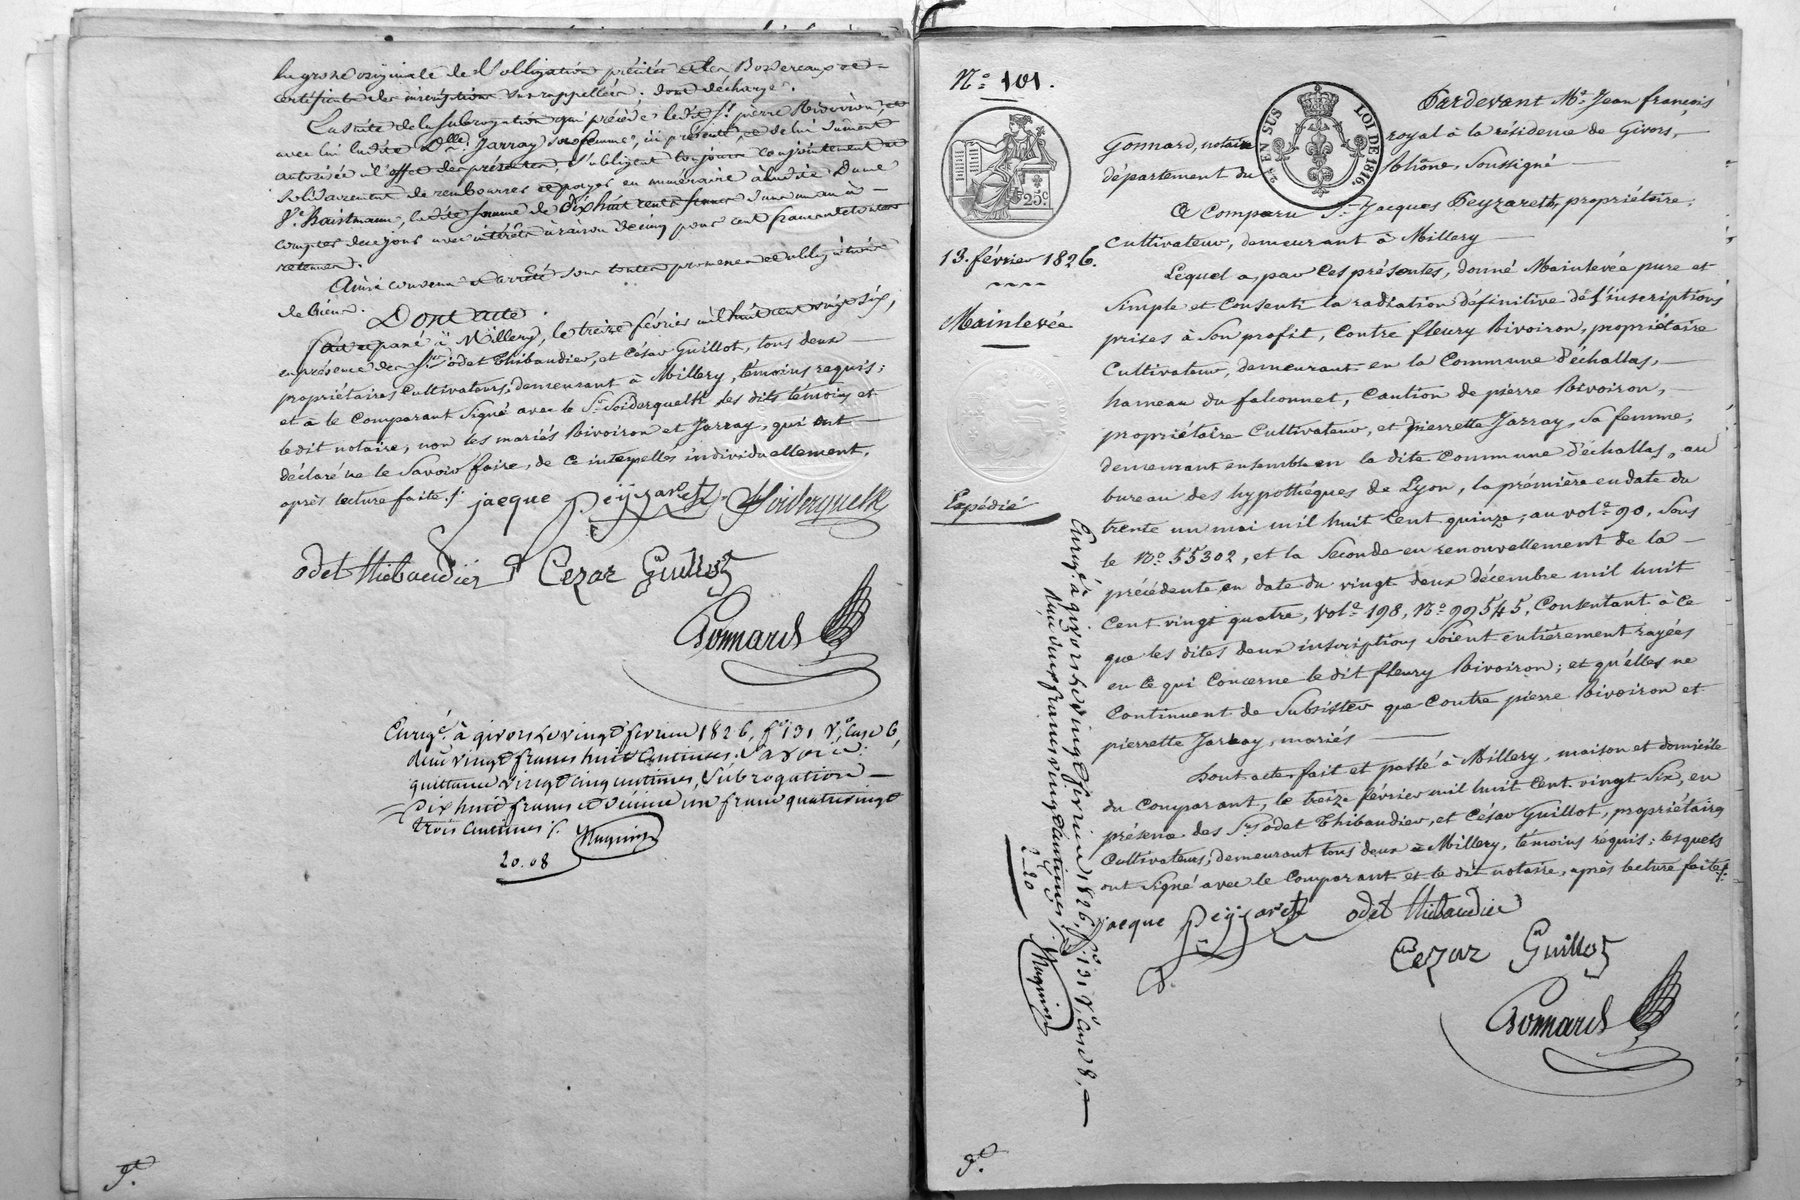 la grosse originale de l'obligation précitée et les Bordereaux et
certificats des inscriptions sus rappellées. dont décharge.
Ensuite de la subrogation qui précède ledit Sr. pierre Rivoiron, et
avec lui ladite Dlle. Jarray sa femme, ici présente, et de lui dûment
autorisée à l'effet des présentes, s'obligent toujours conjointement et
solidairement de rembourser et payer en numéraire à ladite Dame
Ve. Baistmann, ladite somme de dix huit cents francs dans un an à
compter de ce jour avec intérêts à raison de cinq pour cent francs et sans
retenue.
Ainsi convenu et arrêté sous toutes promesses et obligations
de biens. Dont acte.
fait et passé à Millery, le treize février mil huit cent vingt six,
en présence des Srs. odet Thibaudier, et César Guillot, tous deux
propriétaires cultivateurs, demeurant à Millery, témoins requis;
et a le Comparant Signé avec le Sr. Soiderquelk les dits témoins et
ledit notaire, non les mariés Rivoiron et Jarray, qui ont
déclaré ne le Savoir faire, de ce interpellés individuellement,
après lecture faite ./.
jacque Peÿzaret Soiderquelk
odet thibaudier Cezar Guillot
Gonnard
Enregé. à givors Le vingt fevrier 1826, fo. 131 Vo. Case 6,
Reçu vingt francs huit Centimes. Savoir:
quittance vingt cinq centimes, Subrogation
Dix huit francs et dixième un franc quatrevingt
trois Centimes ./.
20.08
No. 101.
25c.
13. février 1826.
Mainlevée
Expédié
25 EN SUS LOI DE 1816.
Pardevant Me. Jean françois
Gonnard, notaire royal à la résidence de Givors,
département du Rhône, Soussigné
A Comparu Sr. Jacques Peyzareth, propriétaire,
Cultivateur, demeurant à Millery
Lequel a, par Ces présentes, donné Mainlevée pure et
Simple et Consenti la radiation définitive de l'inscriptions
prises à Son profit, Contre fleury Rivoiron, propriétaire
Cultivateur, demeurant en la Commune d'échallas,
hameau du falconnet, Caution de pierre Rivoiron,
propriétaire Cultivateur, et pierrette Jarray, Sa femme,
demeurant ensemble en la dite Commune d'échallas, au
bureau des hypothèques de Lyon, la première en date du
trente un mai mil huit Cent quinze, au vole. 90, Sous
le No. 55302, et la Seconde en renouvellement de la
précédente en date du vingt deux décembre mil huit
Cent vingt quatre, vole. 198, No. 99545, Consentant à Ce
que les dites deux inscriptions Soient entièrement rayées
en Ce qui Concerne le dit fleury Rivoiron; et qu'elles ne
Continuent de Subsister que Contre pierre Rivoiron et
pierrette Jarray, mariés
Dont acte, fait et passé à Millery, maison et domicile
du Comparant, le treize février mil huit Cent vingt Six, en
présence des Srs. odet Thibaudier, et César Guillot, propriétaires
Cultivateurs, demeurant tous deux à Millery, témoins requis; lesquels
ont Signé avec le Comparant et le dit notaire, après lecture faite ./.
jacque Peÿzaret odet thibaudier
Cezar Guillot
Gonnard
Enregé. à givors Le vingt fevrier 1826, fo. 131 Vo. Case 8,
Reçu deux francs vingt Centimes ./.
2-20